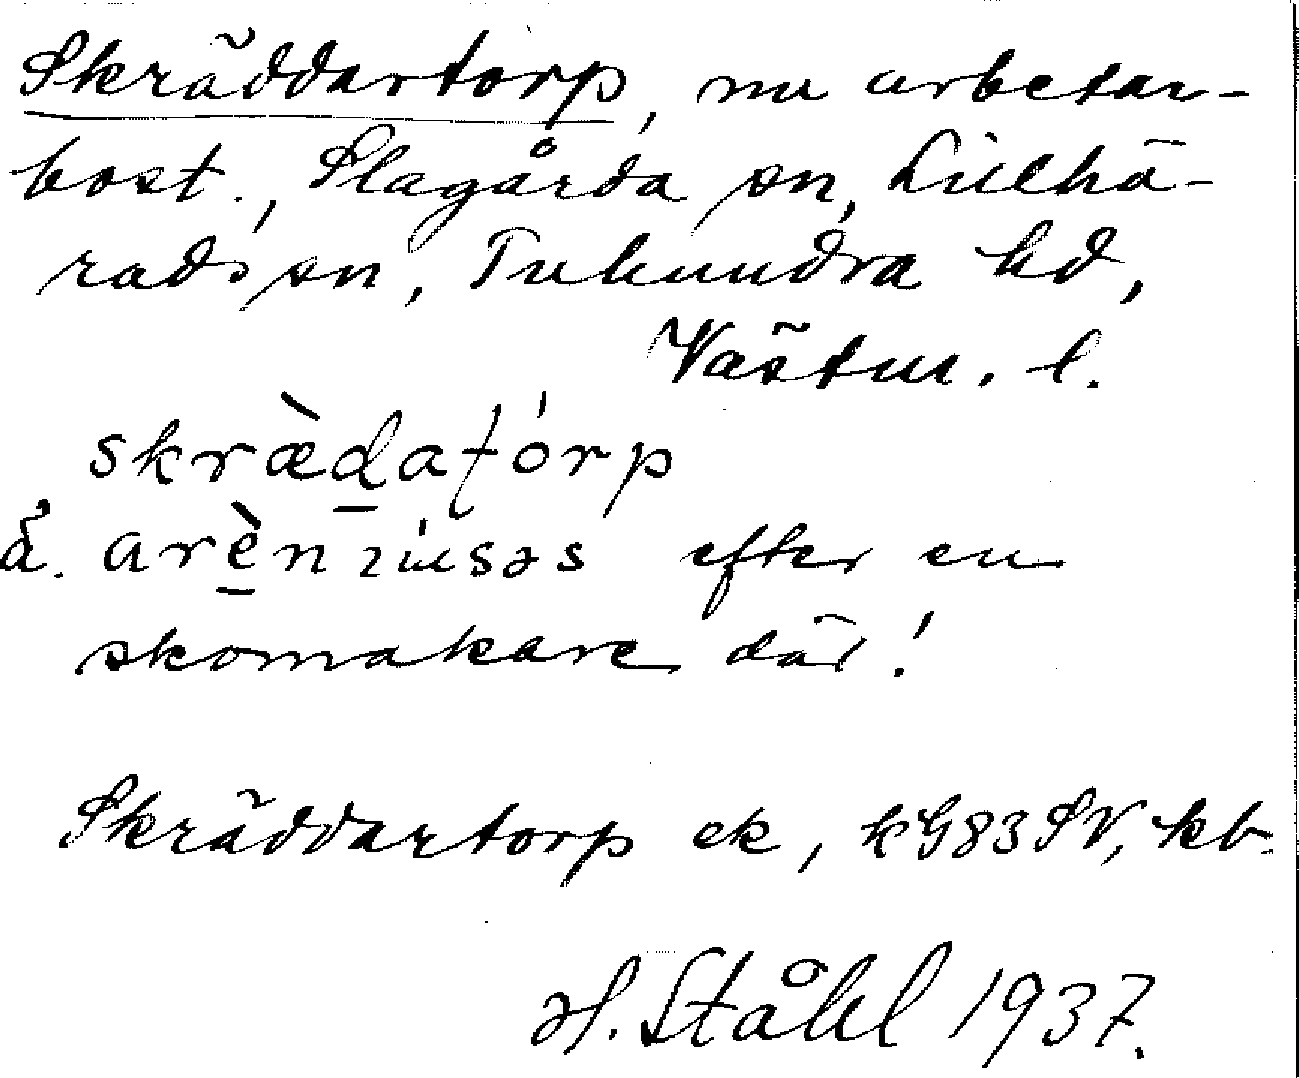 Skräddartorp, nu arbetar-
bost., Slagårda sn, Lillhä-
rads sn, Tuhundra hd,
Västm. l.
skræ̀da tórp
å. arènsiusəs efter en
skomakare där!
Skräddartorp ek, kG83SV, kb.
H. Ståhl 1937.